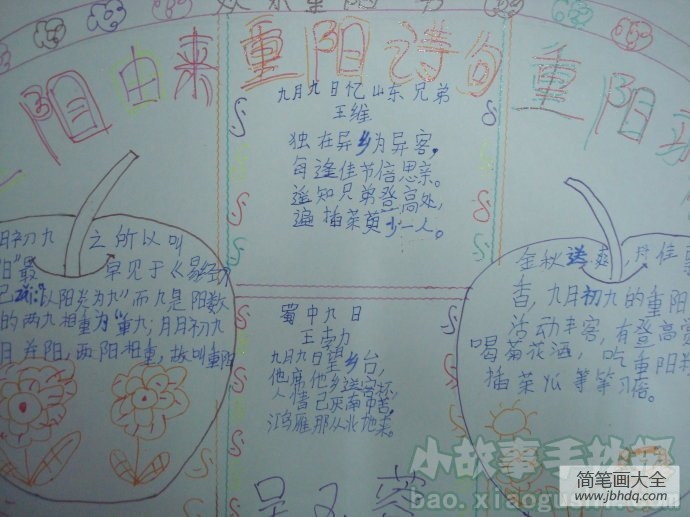 阳由来
重阳诗句
重阳
九月九日忆山东兄弟
王维
独在异乡为异客，
每逢佳节倍思亲。
遥知兄弟登高处，
遍插茱萸少一人。
蜀中九日
王勃
九月九日望乡台，
他席他乡送客杯。
人情已厌南中苦，
鸿雁那从北地来。
阳初九 之所以叫
阳"最 早见于《易经》
以阳爻为九"而九是阳数
的两九相重为"重九；月日初九
月并阳，两阳相重，故叫重阳
金秋送爽，丹佳
香，九月初九的重阳
活动丰客，有登高赏
喝菊花酒，吃重阳
插茱萸等等习俗。
小故事手抄报
bao.xiaogushi
简笔画大全
www.jbhdq.com